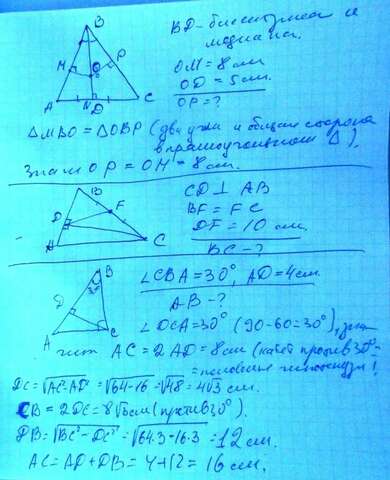 B
BD - биссектриса и
медиана.
M O P
OM = 8 см
OD = 5 см.
A N D C
OP = ?
△MBO = △OBP (два угла и общая сторона
в прямоугольном △),
значит OP = OM = 8 см.
B
CD ⊥ AB
F
BF = FC
D
DF = 10 см.
A C
BC - ?
B
30°
∠CBA = 30°, AD = 4 см.
AB - ?
D
∠DCA = 30° (90-60=30°), зна
A C
чит AC = 2AD = 8 см (катет против 30° =
= половине гипотенузы!
DC = √AC² - AD² = √64-16 = √48 = 4√3 см.
CB = 2DC = 8√3 см (против 30°).
DB = √BC² - DC² = √64·3 - 16·3 = 12 см.
AC = AD + DB = 4 + 12 = 16 см.